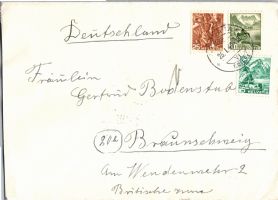 Deutschland
Fräulein
Gertrud Bodenstab
20a Braunschweig
Am Wendenwehr 2
Britische Zone